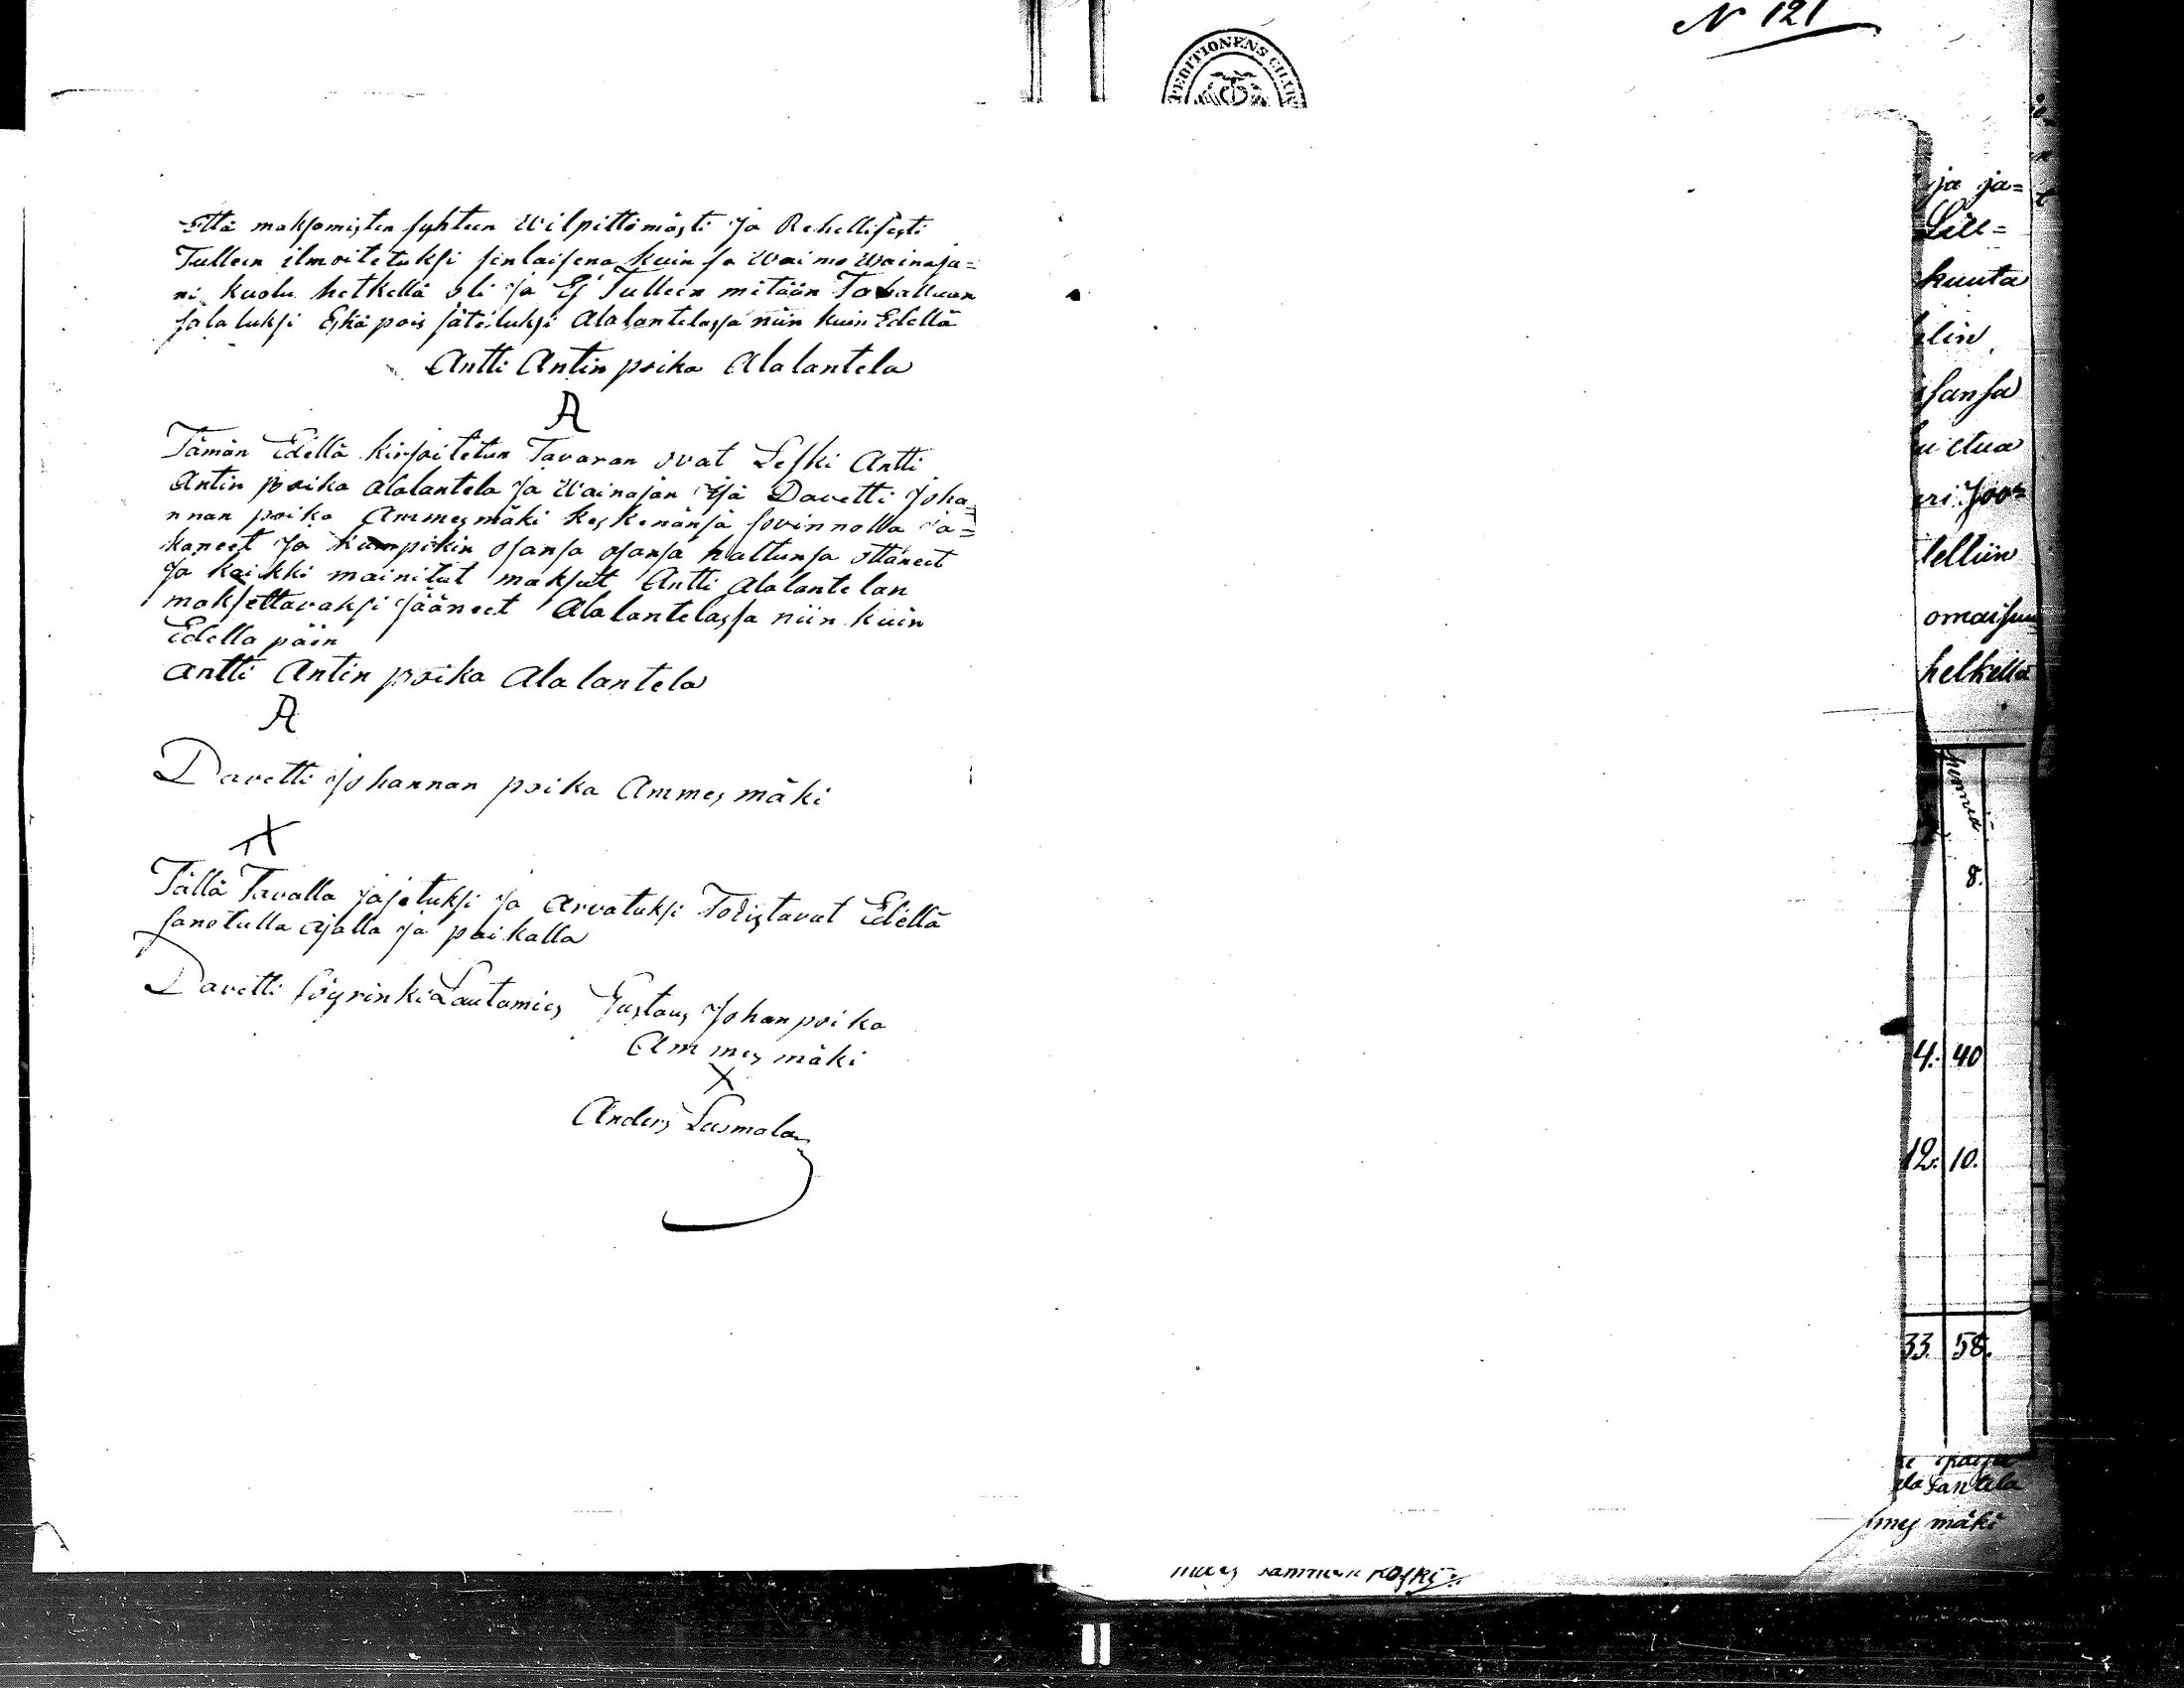 että maksomisten suhteen Wilpittömästi ja Rehellisesti
Tulleen ilmoitetuksi senlaisena kuin se Waimo Wainaja=
ni kuolu hetkellä oli ja Ej Tulleen mitään Tavalluun
salatuksi Eikä pois jätetuksi Alalantelassa niin kuin Edellä
Antti Antin poika Alalantela
A
Tämän Edellä kirjoitetun Tavaran ovat Leski Antti
Antin poika Alalantela ja Wainajan Isä Davetti Joha=
nnan poika Ammesmäki keskenänsä sovinnolla ja=
kaneet ja kumpikin osansa osansa haltunsa ottaneet
ja kaikki mainitut maksut Antti Alalantelan
maksettavaksi jääneet Alalantelassa niin kuin
Edella päin
Antti Antin poika Alalantela
A
Davetti Johannan poika Ammesmäki
X
Tällä Tavalla jajetuksi ja Arvatuksi Todistavat Edellä
sanotulla Ajalla ja paikalla
Davetti Sögrinki Lautamies Gustaus Johanpoika
Ammesmäki
X
Anders Luomala
N 121
PEDITIONENS CH
ja ja=
kuuta
telliin
hetkellä
8.
4. 40
12. 10.
33. 58.
Lantela
mäki
koski